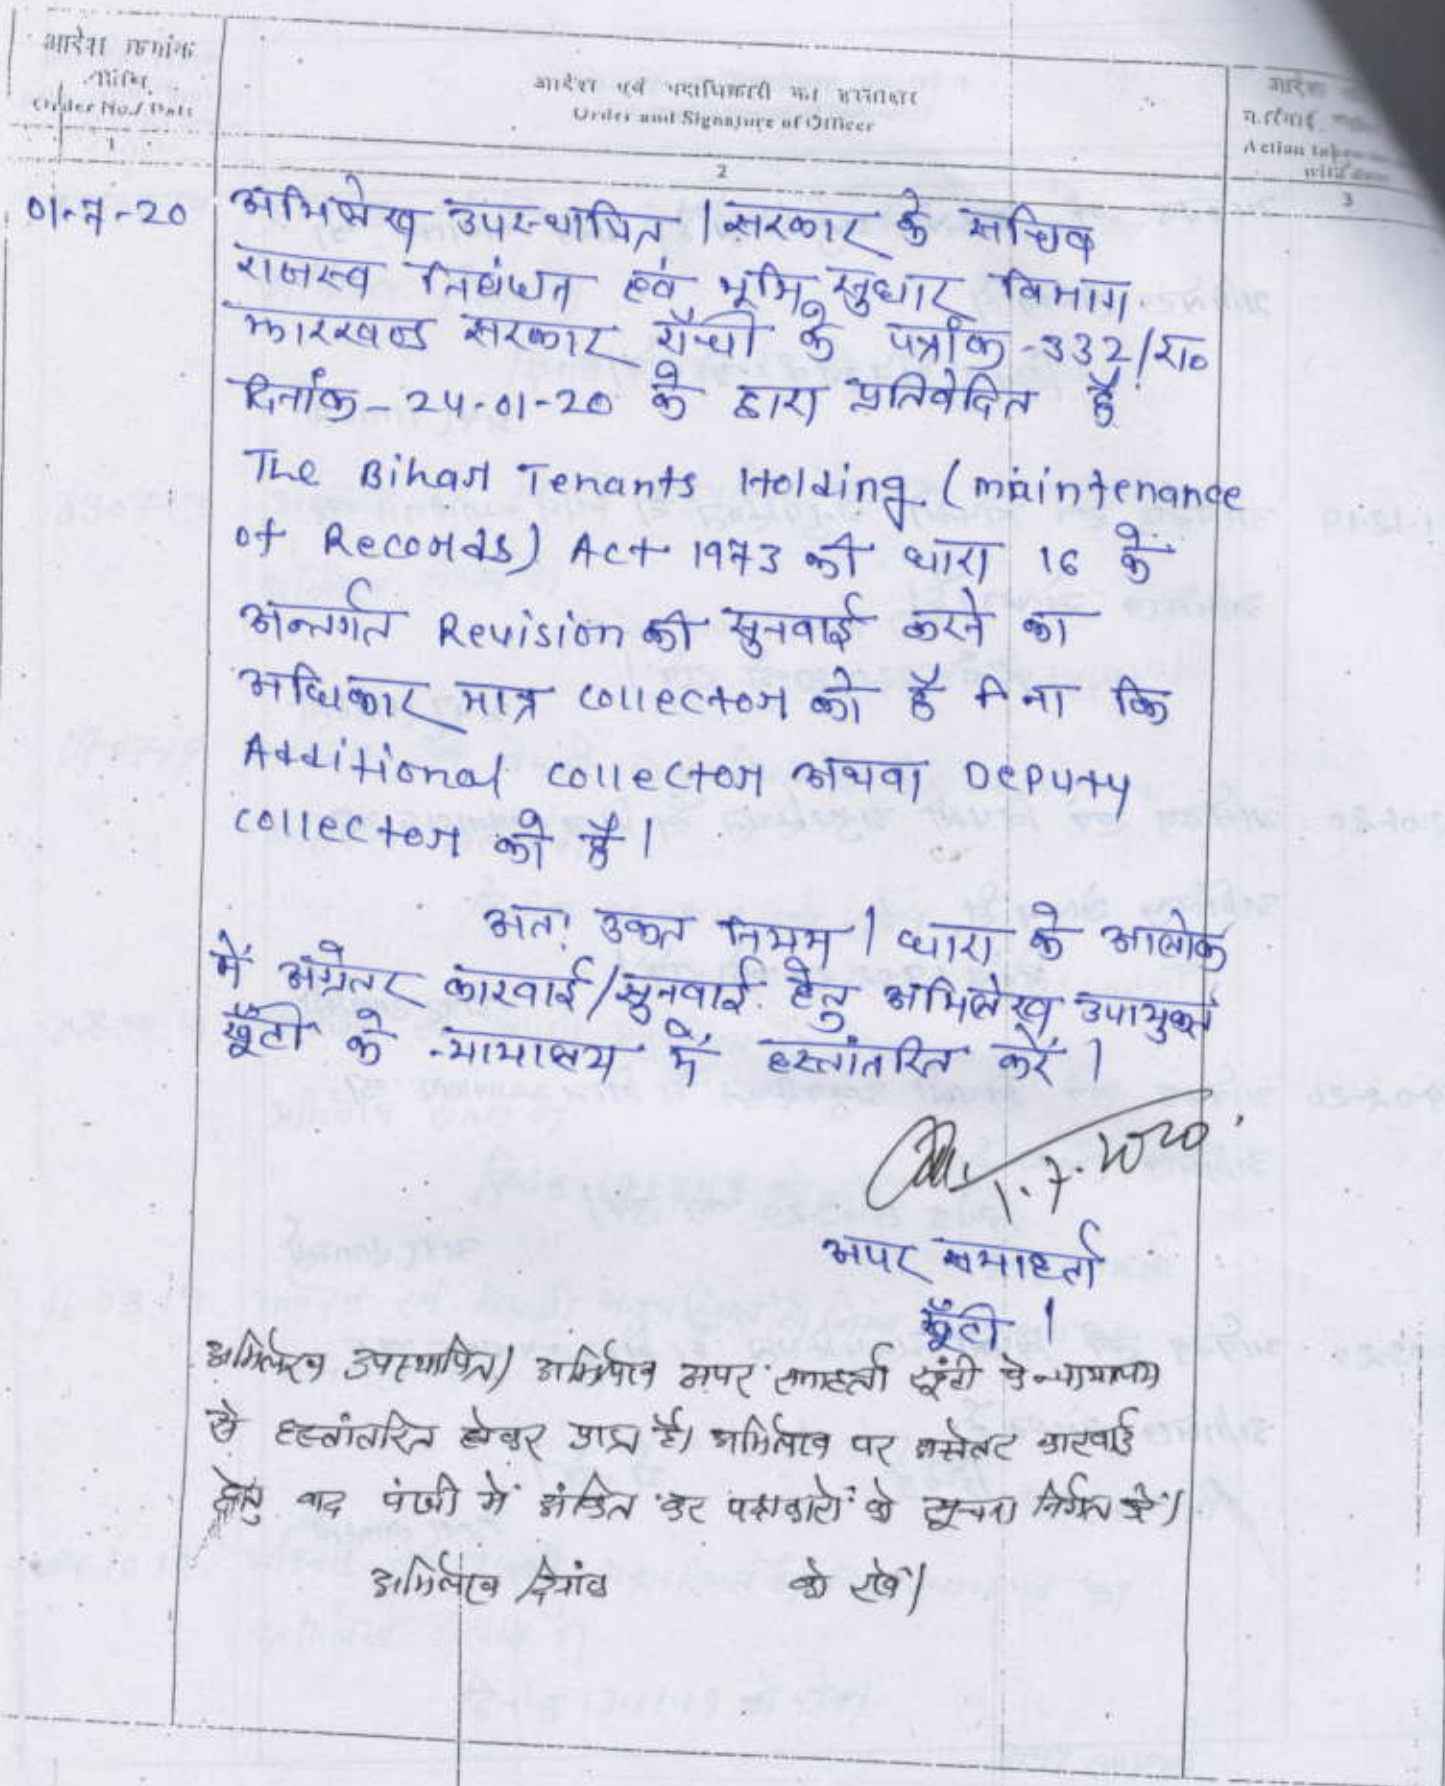 आदेश क्रमांक
तिथि
Order No./ Date
1
आदेश एवं पदाधिकारी का हस्ताक्षर
Order and Signature of Officer
2
Action
with
3
01-7-20 अभिलेख उपस्थापित । सरकार के सचिव
राजस्व निबंधन एवं भूमि सुधार विभाग
झारखण्ड सरकार राँची के पत्रांक -332/रा०
दिनांक - 24-01-20 के द्वारा प्रतिवेदित है
The Bihar Tenants Holding (maintenance
of Records) Act 1973 की धारा 16 के
अन्तर्गत Revision की सुनवाई करने का
अधिकार मात्र collector को है ना कि
Additional collector अथवा Deputy
collector को है ।
अतः उक्त नियम / धारा के आलोक
में अग्रेतर कारवाई/सुनवाई हेतु अभिलेख उपायुक्त
खूँटी के न्यायालय में हस्तांतरित करें ।
1.7.2020
अपर समाहर्ता
खूँटी ।
अभिलेख उपस्थापित। अभिलेख अपर समाहर्ता खूंटी के न्यायालय
से हस्तांतरित होकर प्राप्त है। अभिलेख पर अग्रेतर कारवाई
हेतु वाद पंजी में अंकित कर पक्षकारों को सूचना निर्गत करें।
अभिलेख दिनांक को रखें।